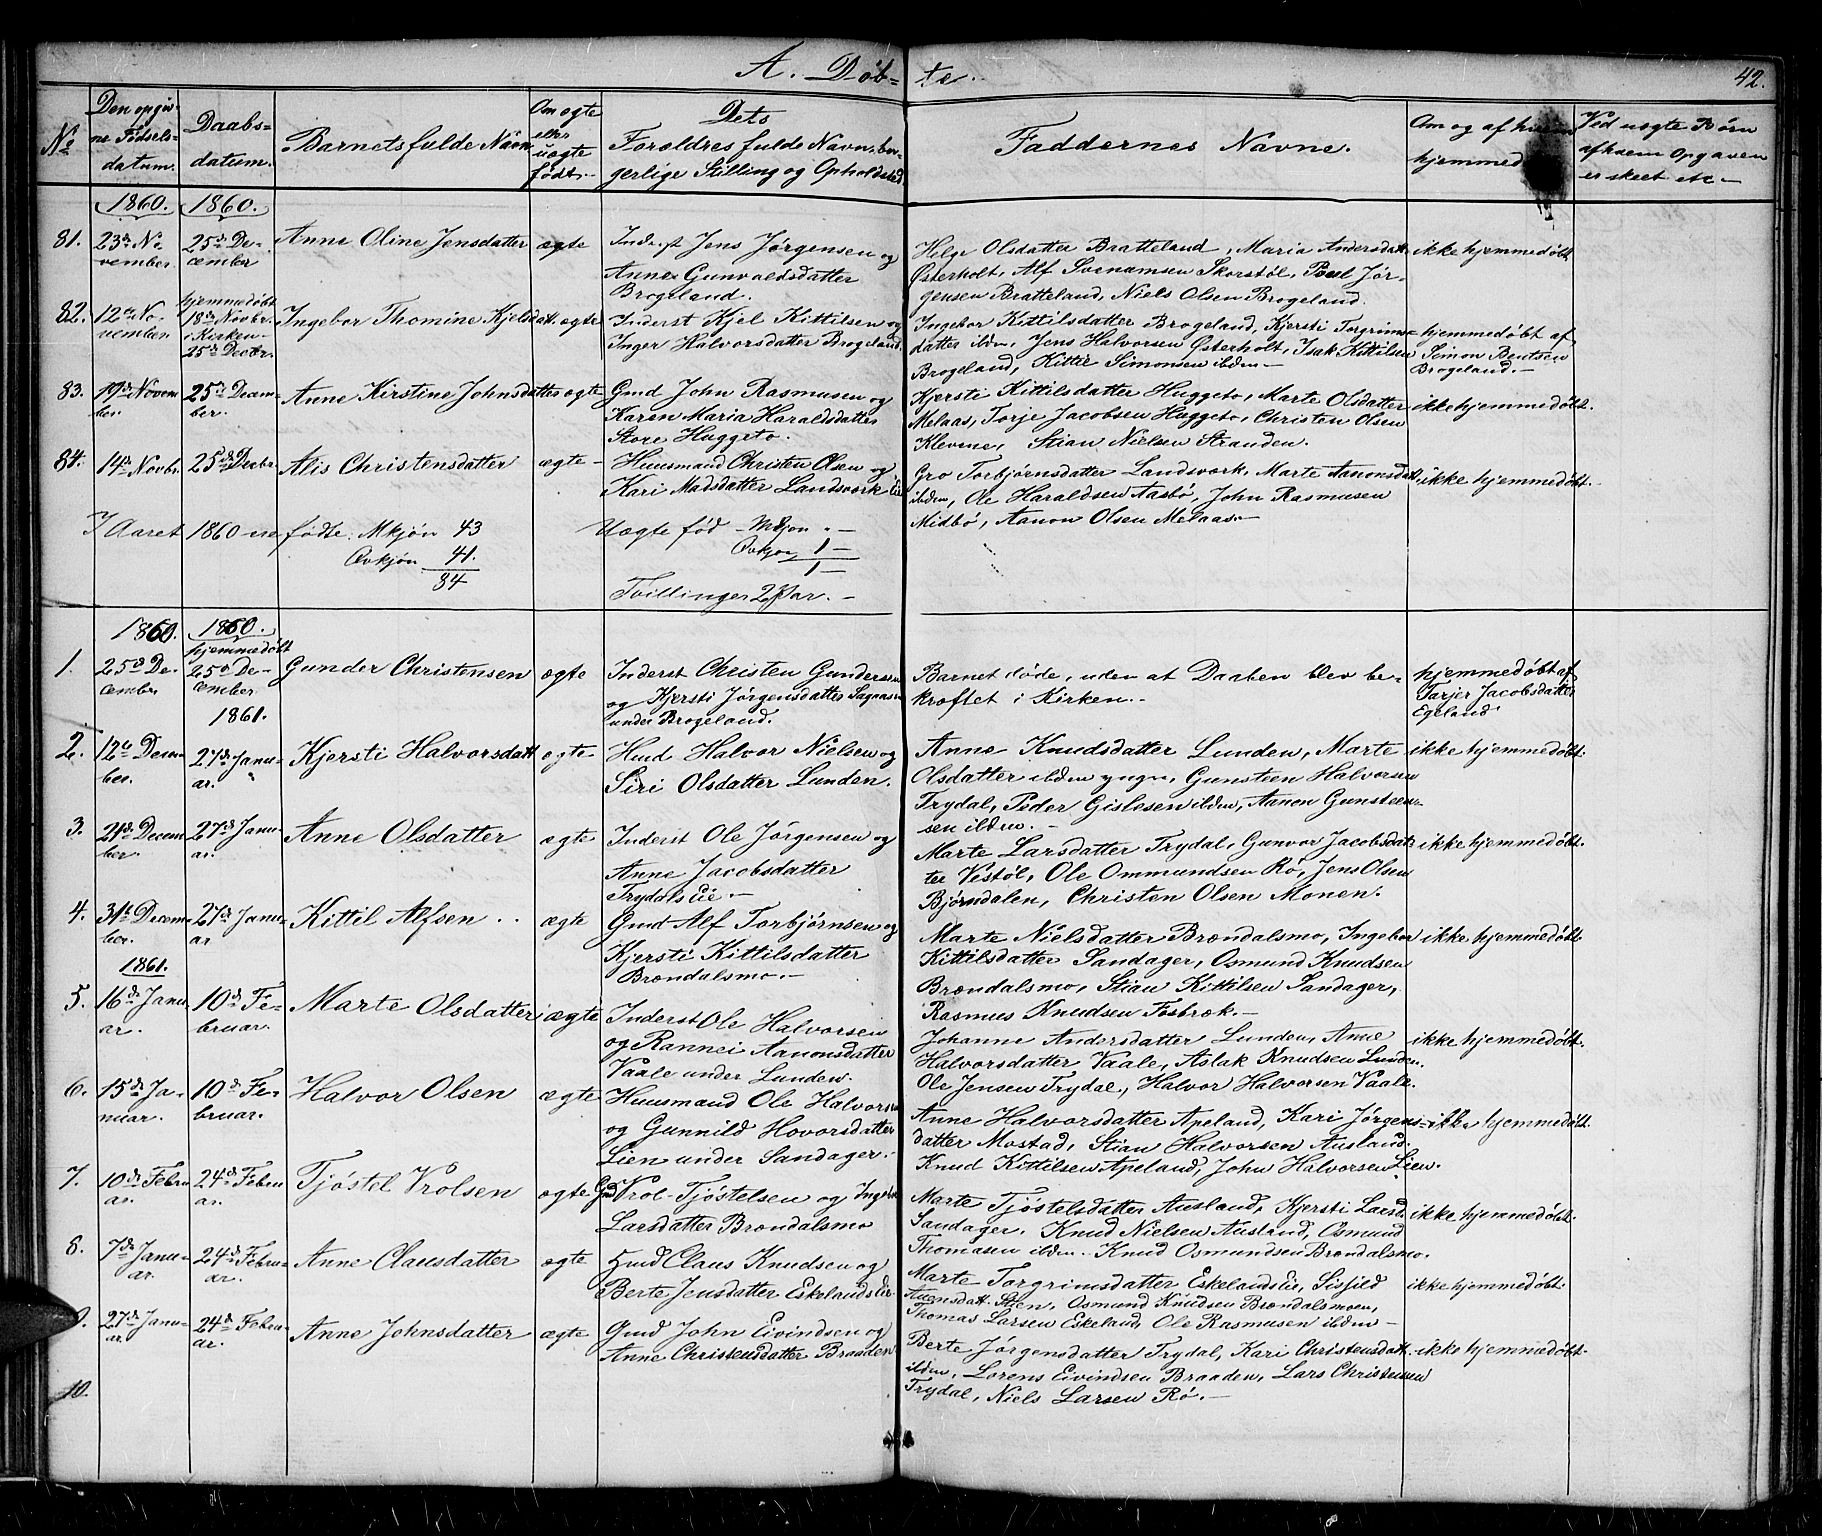 A. Døb= te. 42.
No
Den opgiv=
ne Fødsels=
datum.
Daabs=
datum.
Barnets fulde Navn
Om ægte
eller
uægte
født.
Dets
Forældres fulde Navn, bor=
gerlige Stilling og Opholdssted
Faddernes Navne.
Om og af hvem
hjemmed
Ved uægte Børn
af hvem Opgaven
er skeet etc.
1860. 1860.
81. 23de No
vember
25de De-
cember
Anne Oline Jensdatter ægte
Inderst Jens Jørgensen og
Anne Gunvaldsdatter
Brogeland.
Helge Olsdatter Bratteland, Maria Andersdatt.
Østerholt, Alf Svenumsen Skorstøl, Poul Jør-
gensen Bratteland, Niels Olsen Brogeland.
ikke hjemmedøbt
82. 12te No-
vember
hjemmedøbt
18de Novbr.
i Kirken
25de Decbr.
Ingebor Thomine Kjelsdatt. ægte
Inderst Kjel Kittilsen og
Inger Halvorsdatter Brogeland.
Ingebor Kittilsdatter Brogeland, Kjersti Torgrims=
datter ibdm, Jens Halvorsen Østerholt, Isak Kittilsen
Brogeland, Kittil Simonsen ibdm
hjemmedøbt af
Simon Bentsen
Brogeland.
83. 19de Novem
ber.
25de Decem-
ber.
Anne Kirstine Johnsdatter ægte
Gmd John Rasmusen og
Karen Maria Haraldsdatter
Store Huggeto.
Kjersti Kittilsdatter Huggeto, Marte Olsdatter
Melaas, Torje Jacobsen Huggeto, Christen Olsen
Klevene, Stian Nielsen Stranden.
ikke hjemmedøbt.
84. 14de Novbr. 25de Decbr. Alis Christensdatter ægte
Huusmand Christen Olsen og
Kari Madsdatter Landsværk eie
Gro Torbjørnsdatter Landsværk, Marte Aanonsdatt.
ibdm, Ole Haraldsen Aasbø, John Rasmusen
Midbø, Aanon Olsen Melaas.
ikke hjemmedøbt.
I Aaret 1860 ere fødte. Mkjøn 43
Qvkjøn 41.
84
Uægte fød Mkjøn „
Qvkjøn 1
1
Tvillinger 2 Par.
1860. 1860.
1. 25de De-
cember
hjemmedøbt
25de De-
cember
Gunder Christensen ægte
Inderst Christen Gundersen
og Kjersti Jørgensdatter
under Brogeland.
Barnet døde, uden at Daaben blev be-
kræftet i Kirken.
hjemmedøbt af
Tarjer Jacobsdatter
Egeland
1861.
2. 12te Decem
ber.
27de Janu-
ar.
Kjersti Halvorsdatt ægte
Hmd Halvor Nielsen og
Siri Olsdatter Lunden.
Anne Knudsdatter Lunden, Marte
Olsdatter ibdm yngre, Gunsten Halvorsen
Trydal, Peder Gislesen ibdm, Aanon Gunsteen-
sen ibdm.
ikke hjemmedøbt.
3. 21de Decem
ber.
27de Janu-
ar.
Anne Olsdatter ægte
Inderst Ole Jørgensen og
Anne Jacobsdatter
Trydals Eie.
Marte Larsdatter Trydal, Gunvor Jacobsdat=
ter Vestøl, Ole Ommundsen Rø, Jens Olsen
Bjørndalen, Christen Olsen Monen.
ikke hjemmedøbt.
4. 31te Decem-
ber.
27de Janu-
ar
Kittil Alfsen ægte
Gmd Alf Torbjørnsen og
Kjersti Kittilsdatter
Brøndalsmo.
Marte Nielsdatter Brøndalsmo, Ingebor
Kittilsdatter Sandager, Osmund Knudsen
Brøndalsmo, Stian Kittilsen Sandager,
Rasmus Knudsen Fosbræk.
ikke hjemmedøbt.
1861.
5. 16de Janu
ar.
10de Fe-
bruar.
Marte Olsdatter ægte
Inderst Ole Halvorsen
og Rannei Aanonsdatter
Vaale under Lunden.
Johanne Andersdatter Lunden, Anne
Halvorsdatter Vaale, Aslak Knudsen Lunden
Ole Jensen Trydal, Halvor Halvorsen Vaale.
ikke hjemmedøbt.
6. 15de Ja-
nuar.
10de Fe-
bruar.
Halvor Olsen ægte
Huusmand Ole Halvorsen
og Gunnild Hovorsdatter
Lien under Sandager.
Anne Halvorsdatter Apeland, Kari Jørgens=
datter Mostad, Stian Halvorsen Ausland,
Knud Kittilsen Apeland, John Halvorsen Lien.
ikke hjemmedøbt.
7. 10de Febru
ar.
24de Febru
ar.
Tjøstel Vrolsen ægte
Gmd Vrol Tjøstelsen og Ingebor
Larsdatter Brøndalsmo
Marte Tjøstelsdatter Ausland, Kjersti Larsd.
Sandager, Knud Nielsen Ausland, Osmund
Thomasen ibdm. Knud Osmundsen Brøndalsmo.
ikke hjemmedøbt.
8. 7de Janu-
ar.
24de Febru-
ar.
Anne Clausdatter ægte
Hmd Claus Knudsen og
Berte Jensdatter Eskelandseie
Marte Torgrimsdatter Eskelandseie, Sisfild
Stien, Osmund Knudsen Brøndalsmoen,
Thomas Larsen Eskeland, Ole Rasmusen ibdm
ikke hjemmedøbt.
9. 27de Janu-
ar.
24de Febru-
ar.
Anne Johnsdatter ægte
Gmd John Eivindsen og
Anne Christensdatter Braaden
Berte Jørgensdatter Trydal, Kari Christensdatt.
ibdm, Lorens Eivindsen Braaden, Lars Christensen
Trydal, Niels Larsen Rø.
ikke hjemmedøbt.
10.